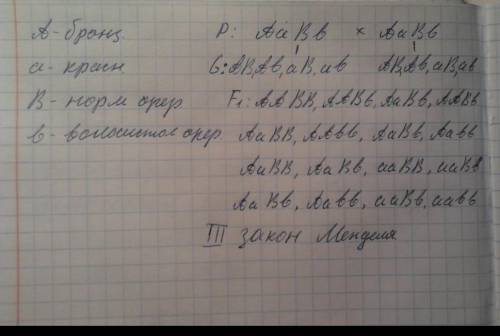 А-бронз P: АаВв × АаВв
а-красн G: АВ, Ав, аВ, ав АВ, Ав, аВ, ав
В-норм опер. F₁: ААВВ, ААВв, АаВв, ААВв
в-волосистое опер. АаВВ, ААвв, АаВв, Аавв
АаВВ, АаВв, ааВВ, ааВв
АаВв, Аавв, ааВв, аавв
III закон Менделя